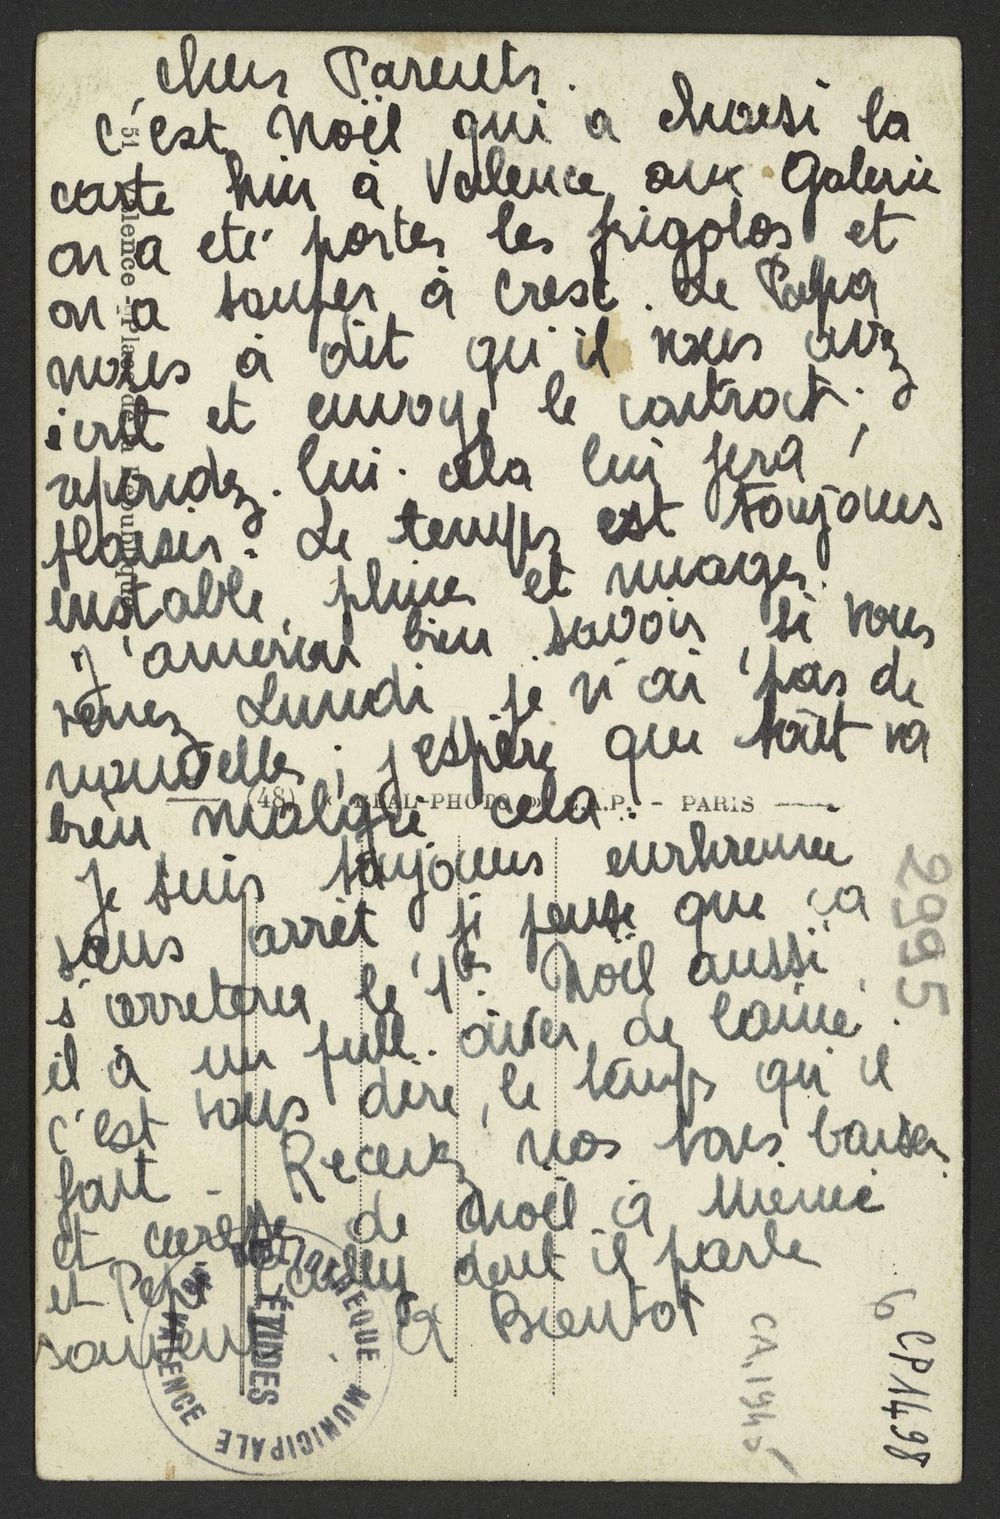 chers Parents.
C'est Noël qui a choisi la
carte hier à Valence aux Galerie
on a eté portes les frigolos et
on a souper à Crest. Le Papa
nous à dit qu'il vous avez
ecrit et envoye le contract.
repondez. lui. cela lui fera
plaisir. Le temps est toujours
instable, pluies et nuages.
J'amerais bien savoir si vous
venez Lundi je n'ai pas de
nouvelles, j'espère que tout va
bien malgré cela.
Je suis toujours enrhumée
sans arrêt je pense que ça
s'arretera le 1er. Noël aussi,
il à un pull. over de laine.
c'est vous dire, le temps qu'il
fait. Recevez nos bons baisers
et caresses de Noël à Mémé
et Pepe dont il parle
souvent. A Bientot
51 Valence - Place de la République
(48) « REAL-PHOTO » C.A.P. - PARIS
2995
6 CP1498
CA.1945
BIBLIOTHEQUE MUNICIPALE
DE VALENCE
ÉTUDES